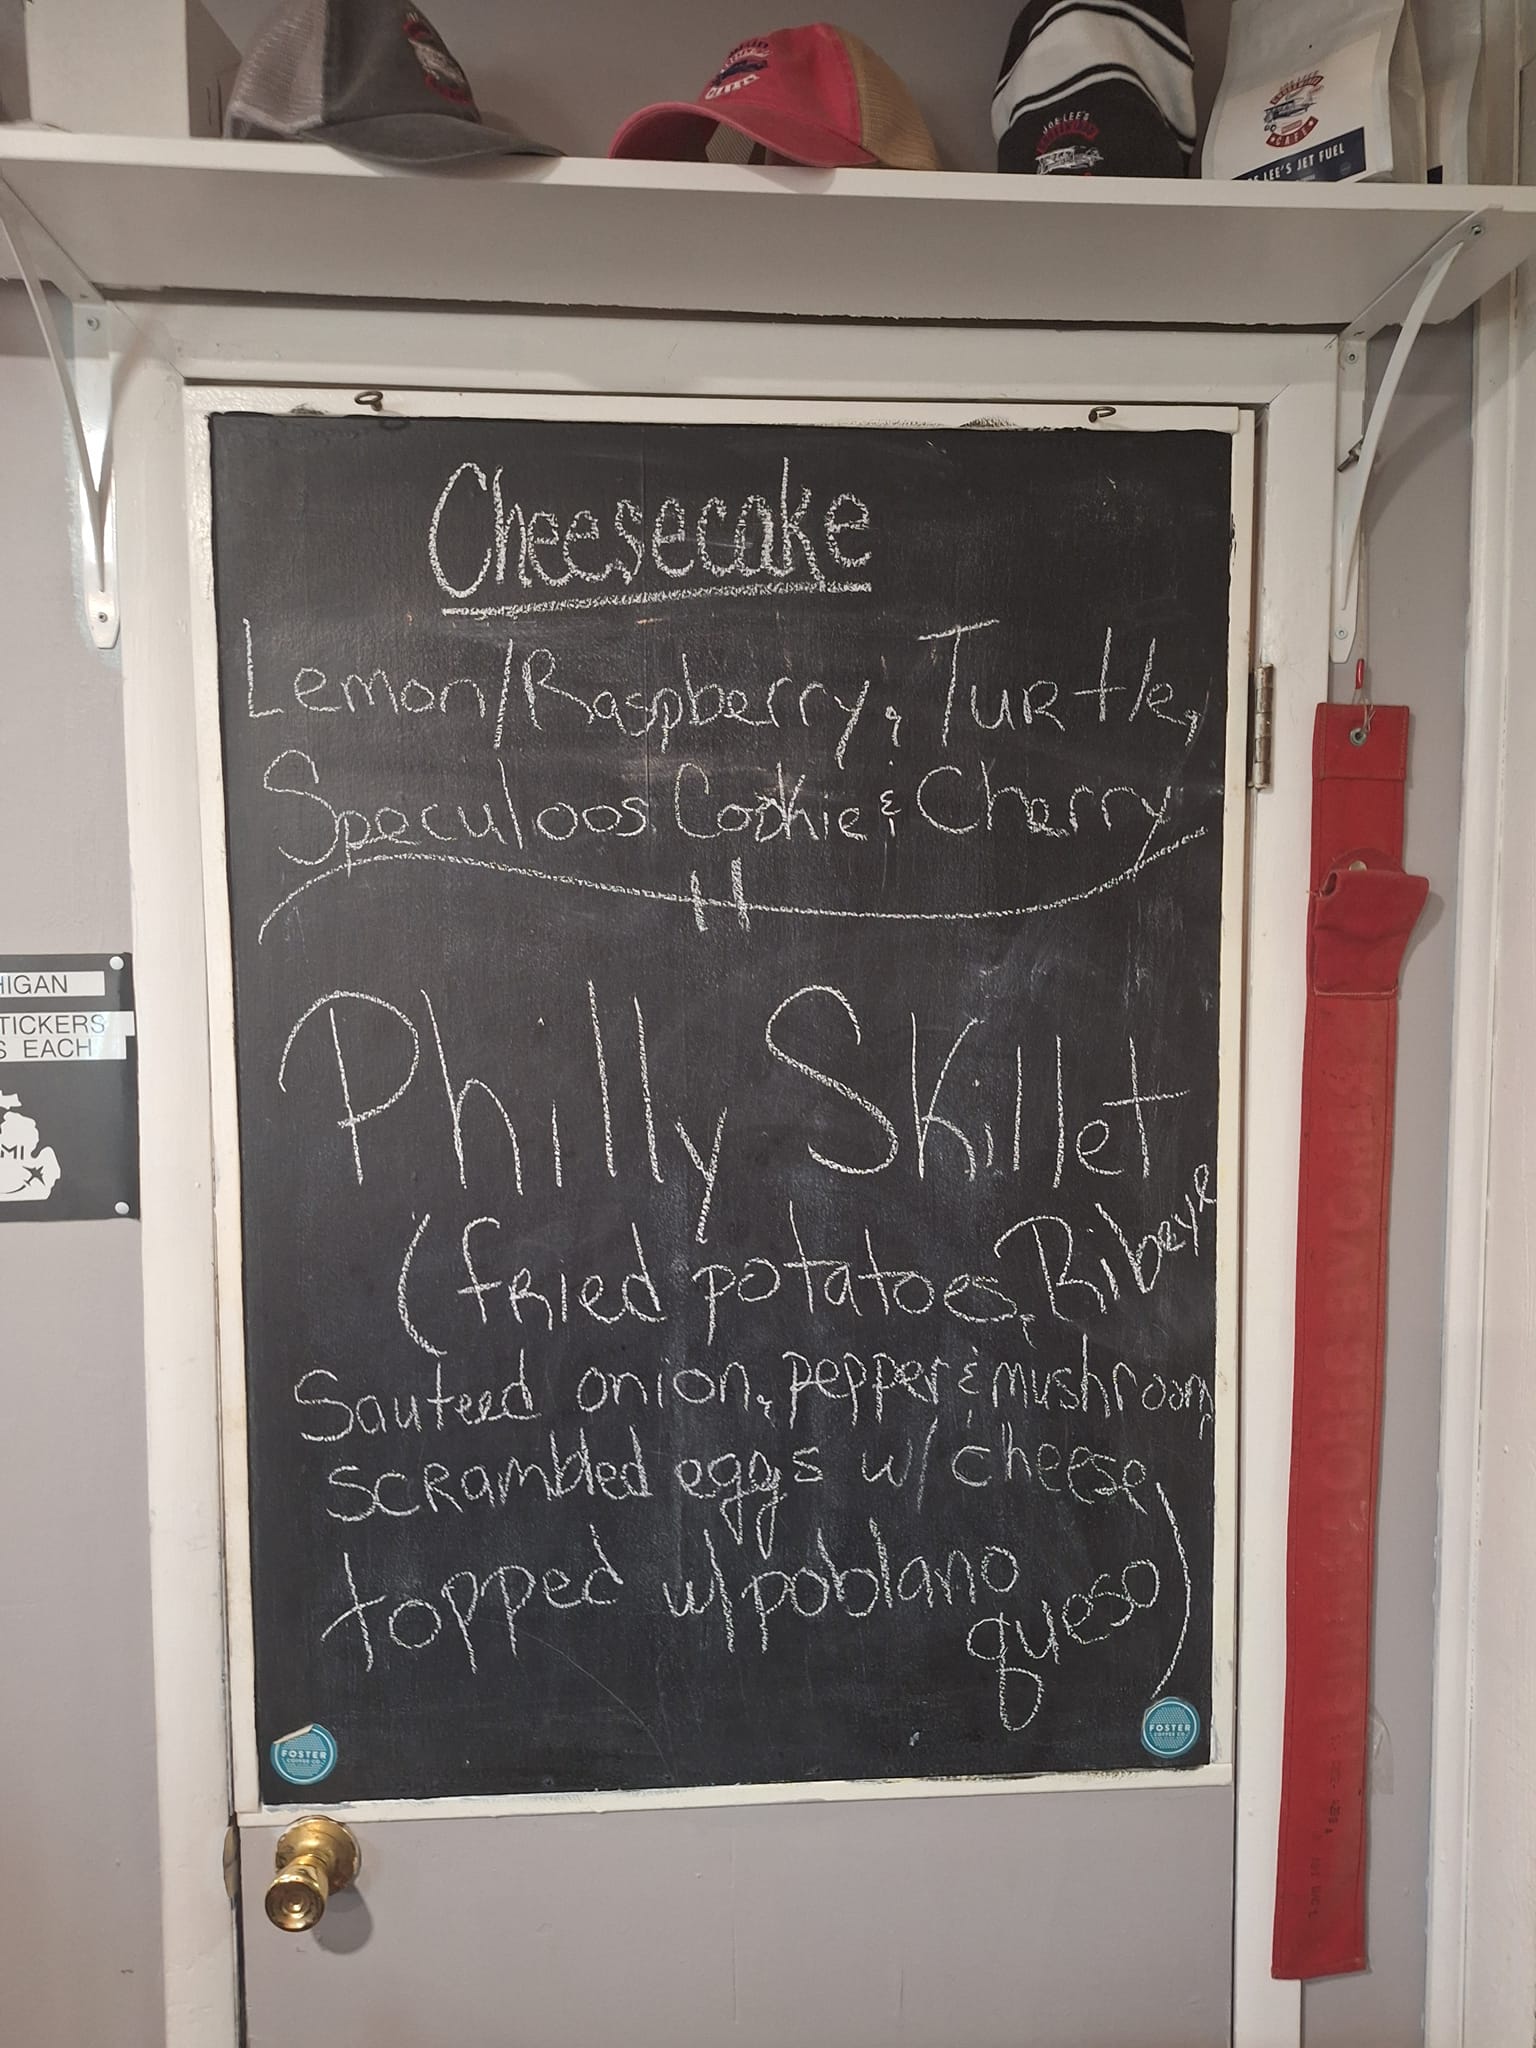 JOE LEE'S
CAFE
LEE'S JET FUEL
Cheesecake
Lemon/Raspberry, Turtle,
Speculoos Cookie & Cherry
Philly Skillet
(fried potatoes, Ribeye
Sauteed onion, pepper & mushroom,
scrambled eggs w/ cheese
topped w/poblano
queso)
HIGAN
TICKERS
S EACH
MI
FOSTER
COFFEE CO.
FOSTER
COFFEE CO.